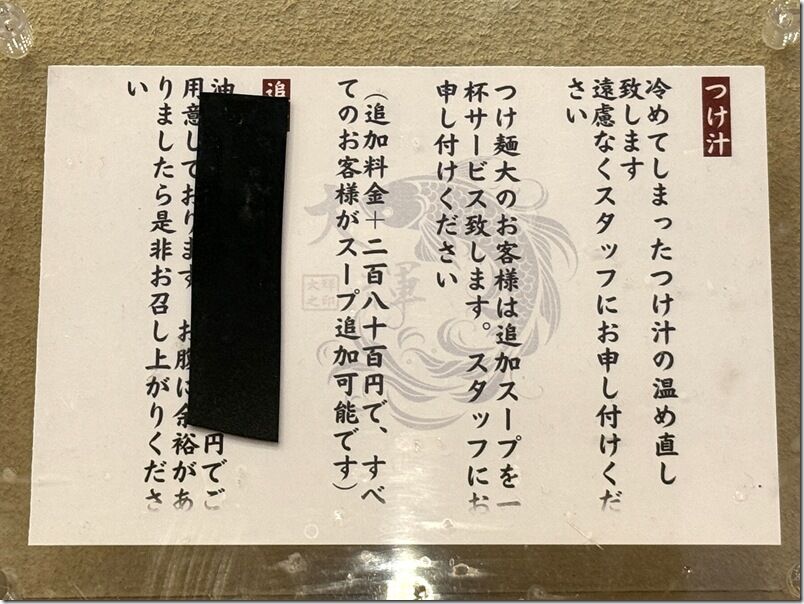 つけ汁
冷めてしまったつけ汁の温め直し
致します
遠慮なくスタッフにお申し付けくだ
さい
つけ麺大のお客様は追加スープを一
杯サービス致します。スタッフにお
申し付けください
(追加料金+二百八十百円で、すべ
てのお客様がスープ追加可能です)
追
油
円でご
用意しております お腹に余裕があ
りましたら是非お召し上がりくださ
い
大輝
大輝之印